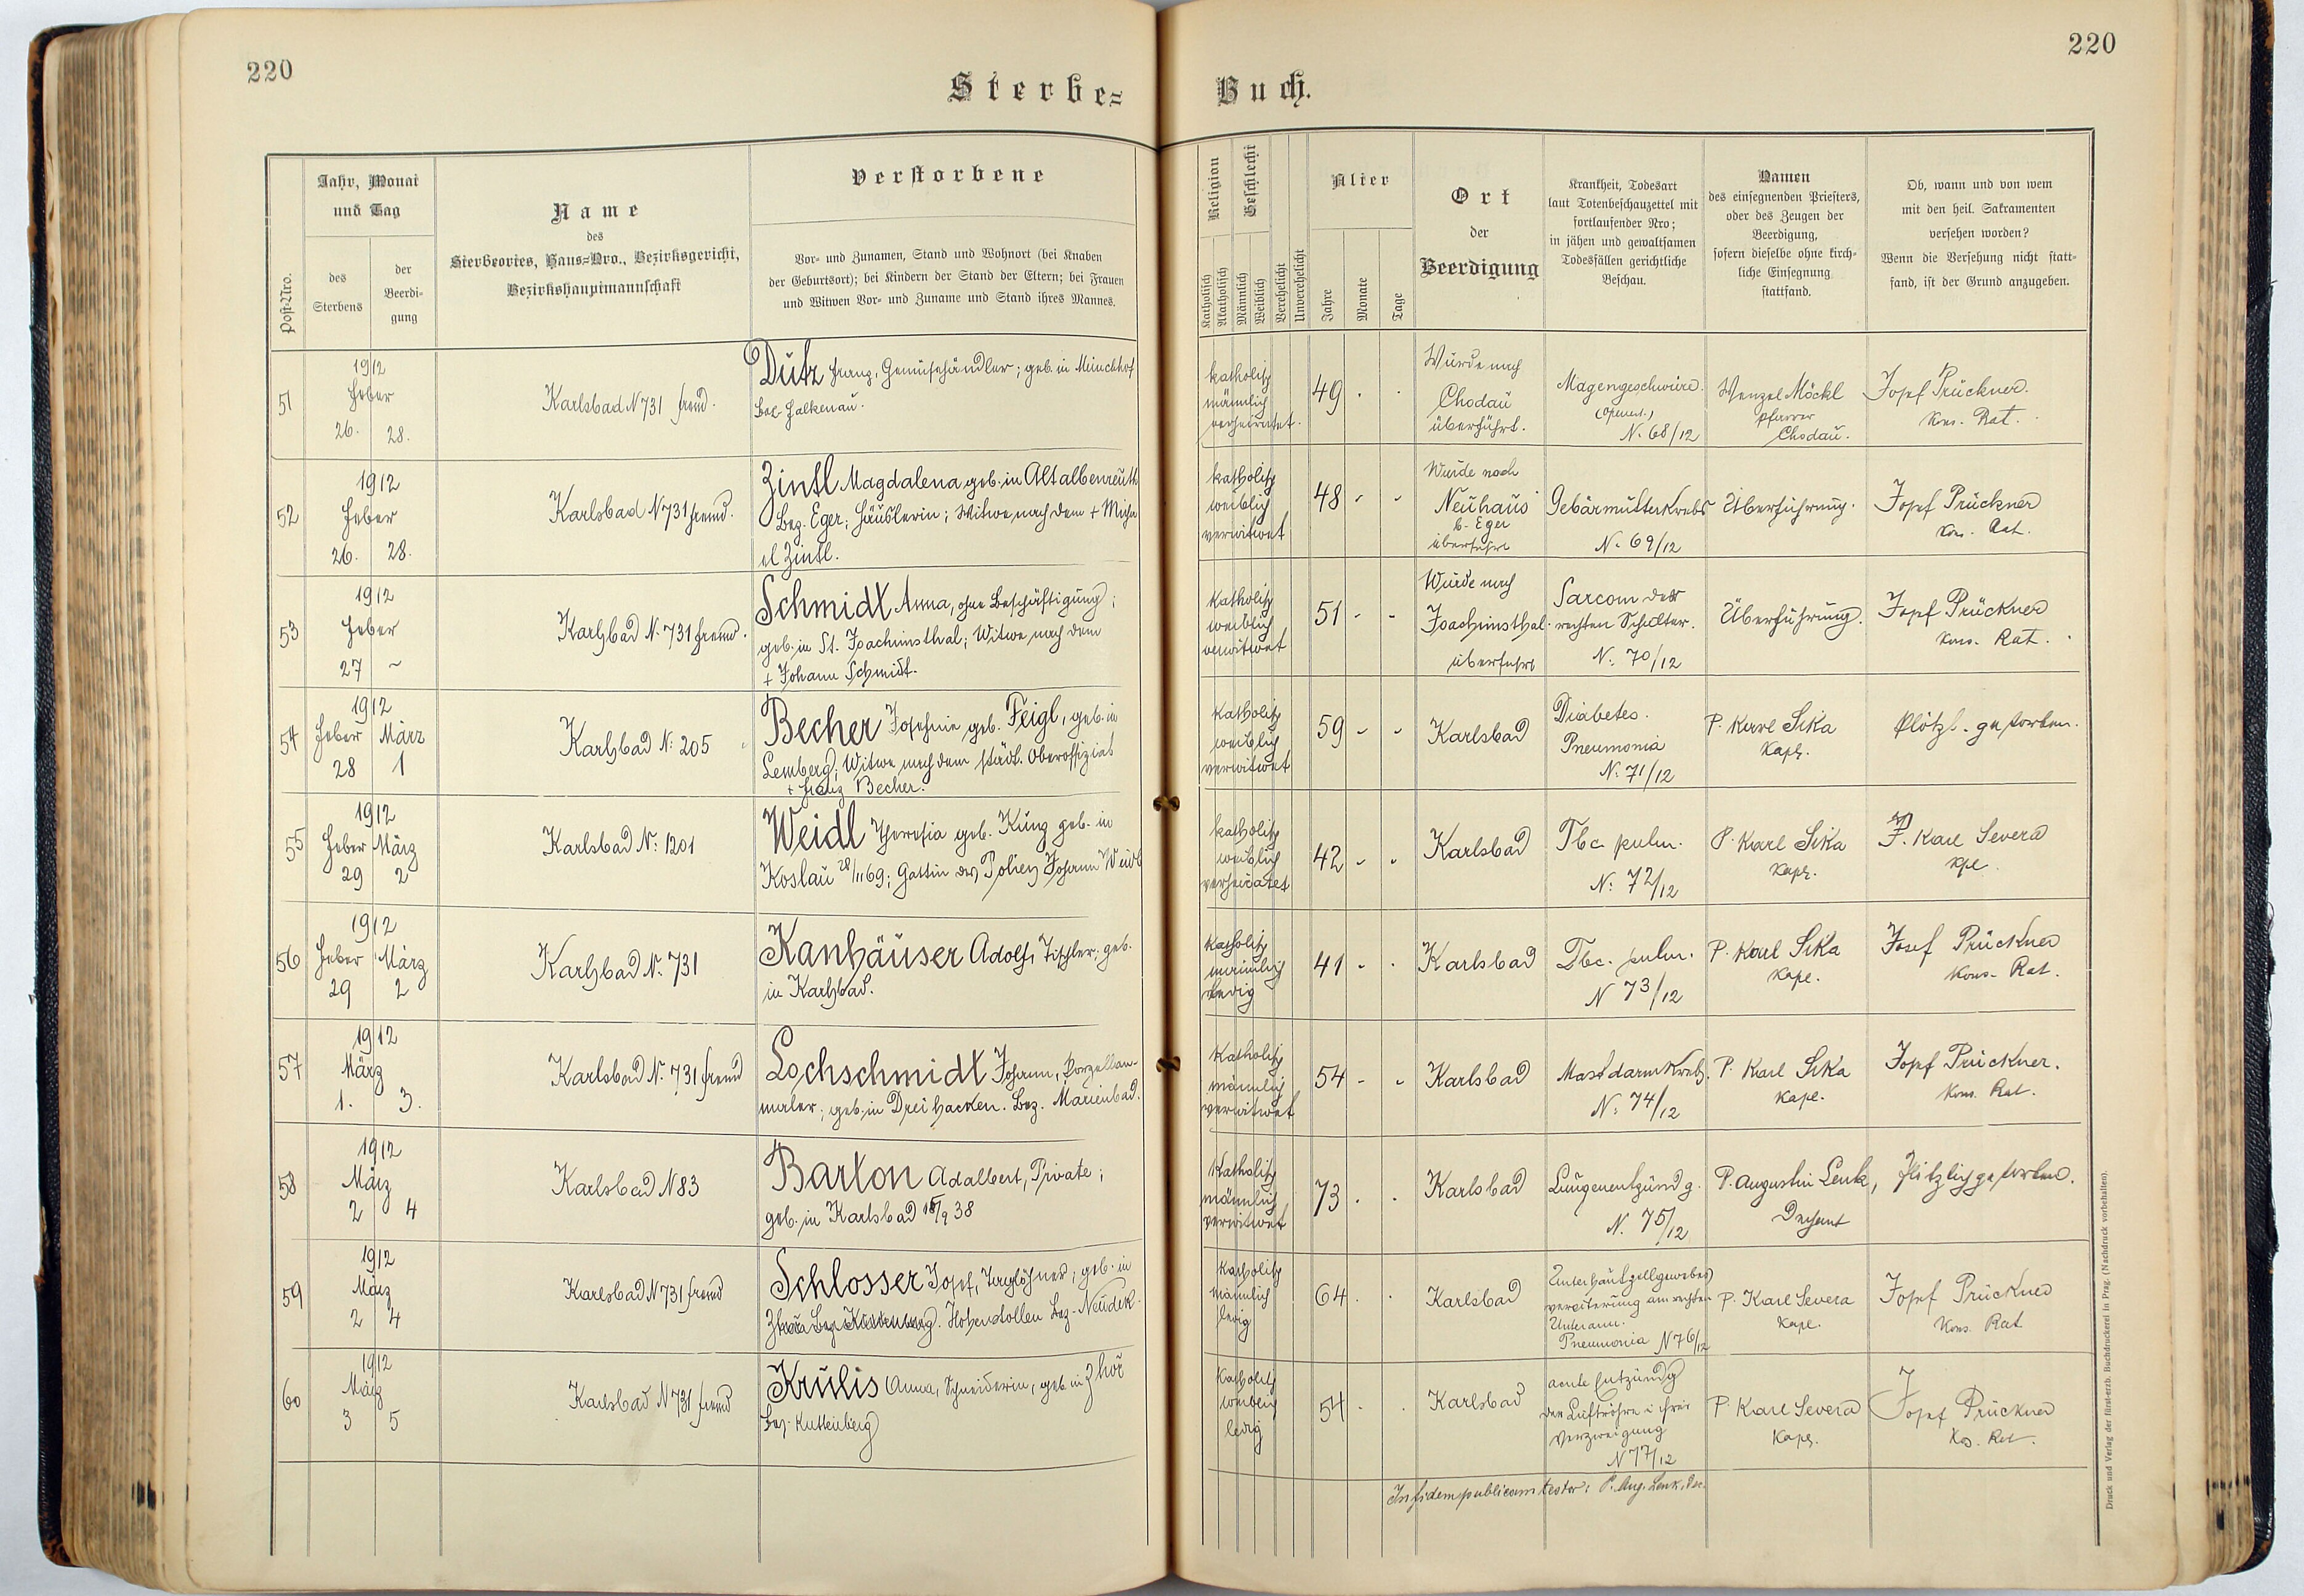 220
220
Sterbe=
Buch.
Post-Nro.
Jahr, Monat
und Tag
des
Sterbens
der
Beerdi-
gung
Name
des
Sterbeortes, Haus=Nro., Bezirksgericht,
Bezirkshauptmannschaft
Verstorbene
Vor- und Zunamen, Stand und Wohnort (bei Knaben
der Geburtsort); bei Kindern der Stand der Eltern; bei Frauen
und Witwen Vor- und Zuname und Stand ihres Mannes.
Religion
Katholisch
Akatholisch
Geschlecht
Männlich
Weiblich
Verehelicht
Unverehelicht
Alter
Jahre
Monate
Tage
Ort
der
Beerdigung
Krankheit, Todesart
laut Totenbeschauzettel mit
fortlaufender Nro;
in jähen und gewaltsamen
Todesfällen gerichtliche
Beschau.
Namen
des einsegnenden Priesters,
oder des Zeugen der
Beerdigung,
sofern dieselbe ohne kirch-
liche Einsegnung
stattfand.
Ob, wann und von wem
mit den heil. Sakramenten
versehen worden?
Wenn die Versehung nicht statt-
fand, ist der Grund anzugeben.
51
1912
Feber
26. 28.
Karlsbad N 731 fremd.
Dütz Franz, Gemüsehändler; geb. in Münchhof
Bez. Falkenau.
katholisch
männlich
verheiratet.
49
Wurde nach
Chodau
überführt.
Magengeschwüre.
N. 68/12
Wenzel Möckl
Pfarrer
Chodau.
Josef Prückner.
Kons. Rat.
52
1912
Feber
26. 28.
Karlsbad N 731 fremd.
Zintl Magdalena geb. in Altalbenreuth
Bez. Eger; Häuslerin; Witwe nach dem + Micha
el Zintl.
katholisch
weiblich
verwitwet
48
Wurde nach
Neuhaus
b. Eger
überführt
Gebärmutterkrebs
N. 69/12
Überführung.
Josef Prückner
Kons. Rat.
53
1912
Feber
27 ~
Karlsbad N. 731 fremd.
Schmidt Anna, ohne Beschäftigung;
geb. in St. Joachimsthal; Witwe nach dem
+ Johann Schmidt.
katholisch
weiblich
verwitwet
51
Wurde nach
Joachimsthal
überführt
Sarcom der
rechten Schulter.
N. 70/12
Überführung.
Josef Prückner
Kons. Rat.
54
1912
Feber März
28 1
Karlsbad N. 205
Becher Josefine geb. Feigl, geb. in
Lemberg; Witwe nach dem städt. Oberoffizial
+ Franz Becher.
katholisch
weiblich
verwitwet
59
Karlsbad
Diabetes.
Pneumonia
N. 71/12
P. Karl Sika
Kapl.
Plötzl. gestorben.
55
1912
Feber März
29 2
Karlsbad N: 1201
Weidl Theresia geb. Künz geb. in
Koslau 28/11 69; Gattin des Poliers Johann Weidl
katholisch
weiblich
verheiratet
42
Karlsbad
Tbc. pulm.
N: 72/12
P. Karl Sika
Kapl.
P. Karl Severa
Kpl.
56
1912
Feber März
29 2
Karlsbad N. 731
Kanhäuser Adolf, Tischler; geb.
in Karlsbad.
katholisch
männlich
ledig
41
Karlsbad
Tbc. pulm.
N 73/12
P. Karl Sika
Kapl.
Josef Prückner
Kons. Rat.
57
1912
März
1. 3.
Karlsbad N. 731 fremd
Lochschmidt Johann, Porzellan-
maler; geb. in Dreihacken. Bez. Marienbad.
katholisch
männlich
verwitwet
54
Karlsbad
Mastdarmkrebs.
N: 74/12
P. Karl Sika
Kapl.
Josef Prückner.
Kons. Rat.
58
1912
März
2 4
Karlsbad N 83
Barton Adalbert, Private;
geb. in Karlsbad /9 38
katholisch
männlich
verwitwet
73
Karlsbad
Lungenentzündg.
N. 75/12
P. Augustin Lenk,
Dechant
Plötzlich gestorben.
59
1912
März
2 4
Karlsbad N 731 fremd
Schlosser Josef, Taglöhner; geb. in
Hohenstollen Bez. Neudek.
katholisch
männlich
ledig
64
Karlsbad
Unterhautzellgewebes
vereiterung am rechten
Unterarm.
Pneumonia N 76/12
P. Karl Severa
Kapl.
Josef Prückner
Kons. Rat
60
1912
März
3 5
Karlsbad N 731 fremd
Krulis Anna, Schneiderin, geb. in Zhoř
Bez. Kuttenberg
katholisch
weiblich
ledig
54
Karlsbad
acute Entzündg
der Luftröhre u ihrer
Verzweigung
N 77/12
P. Karl Severa
Kapl.
Josef Prückner
Kos. Rat.
In fidem publicam testor: P. Aug. Lenk, Dec.
Druck und Verlag der fürst-erzb. Buchdruckerei in Prag. (Nachdruck vorbehalten).